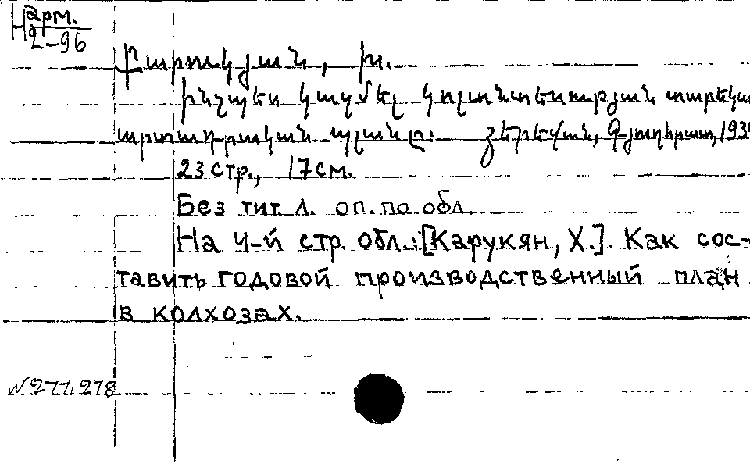 Н арм.
2-96
Քարուկյան, Խ.
Ինչպես կազմել կոլտնտեսության տարեկա
արտադրական պլանը։ Յերեվան, Գյուղհրատ, 193
23 стр., 17 см.
Без тит. л. оп. по обл.
На 4-й стр. обл.: [Карукян, Х.]. Как сос-
тавить годовой производственный план
в колхозах.
№ 277.278